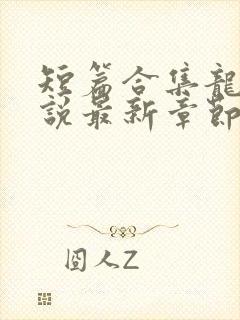 短篇合集龍
說最新章節
囧人Z